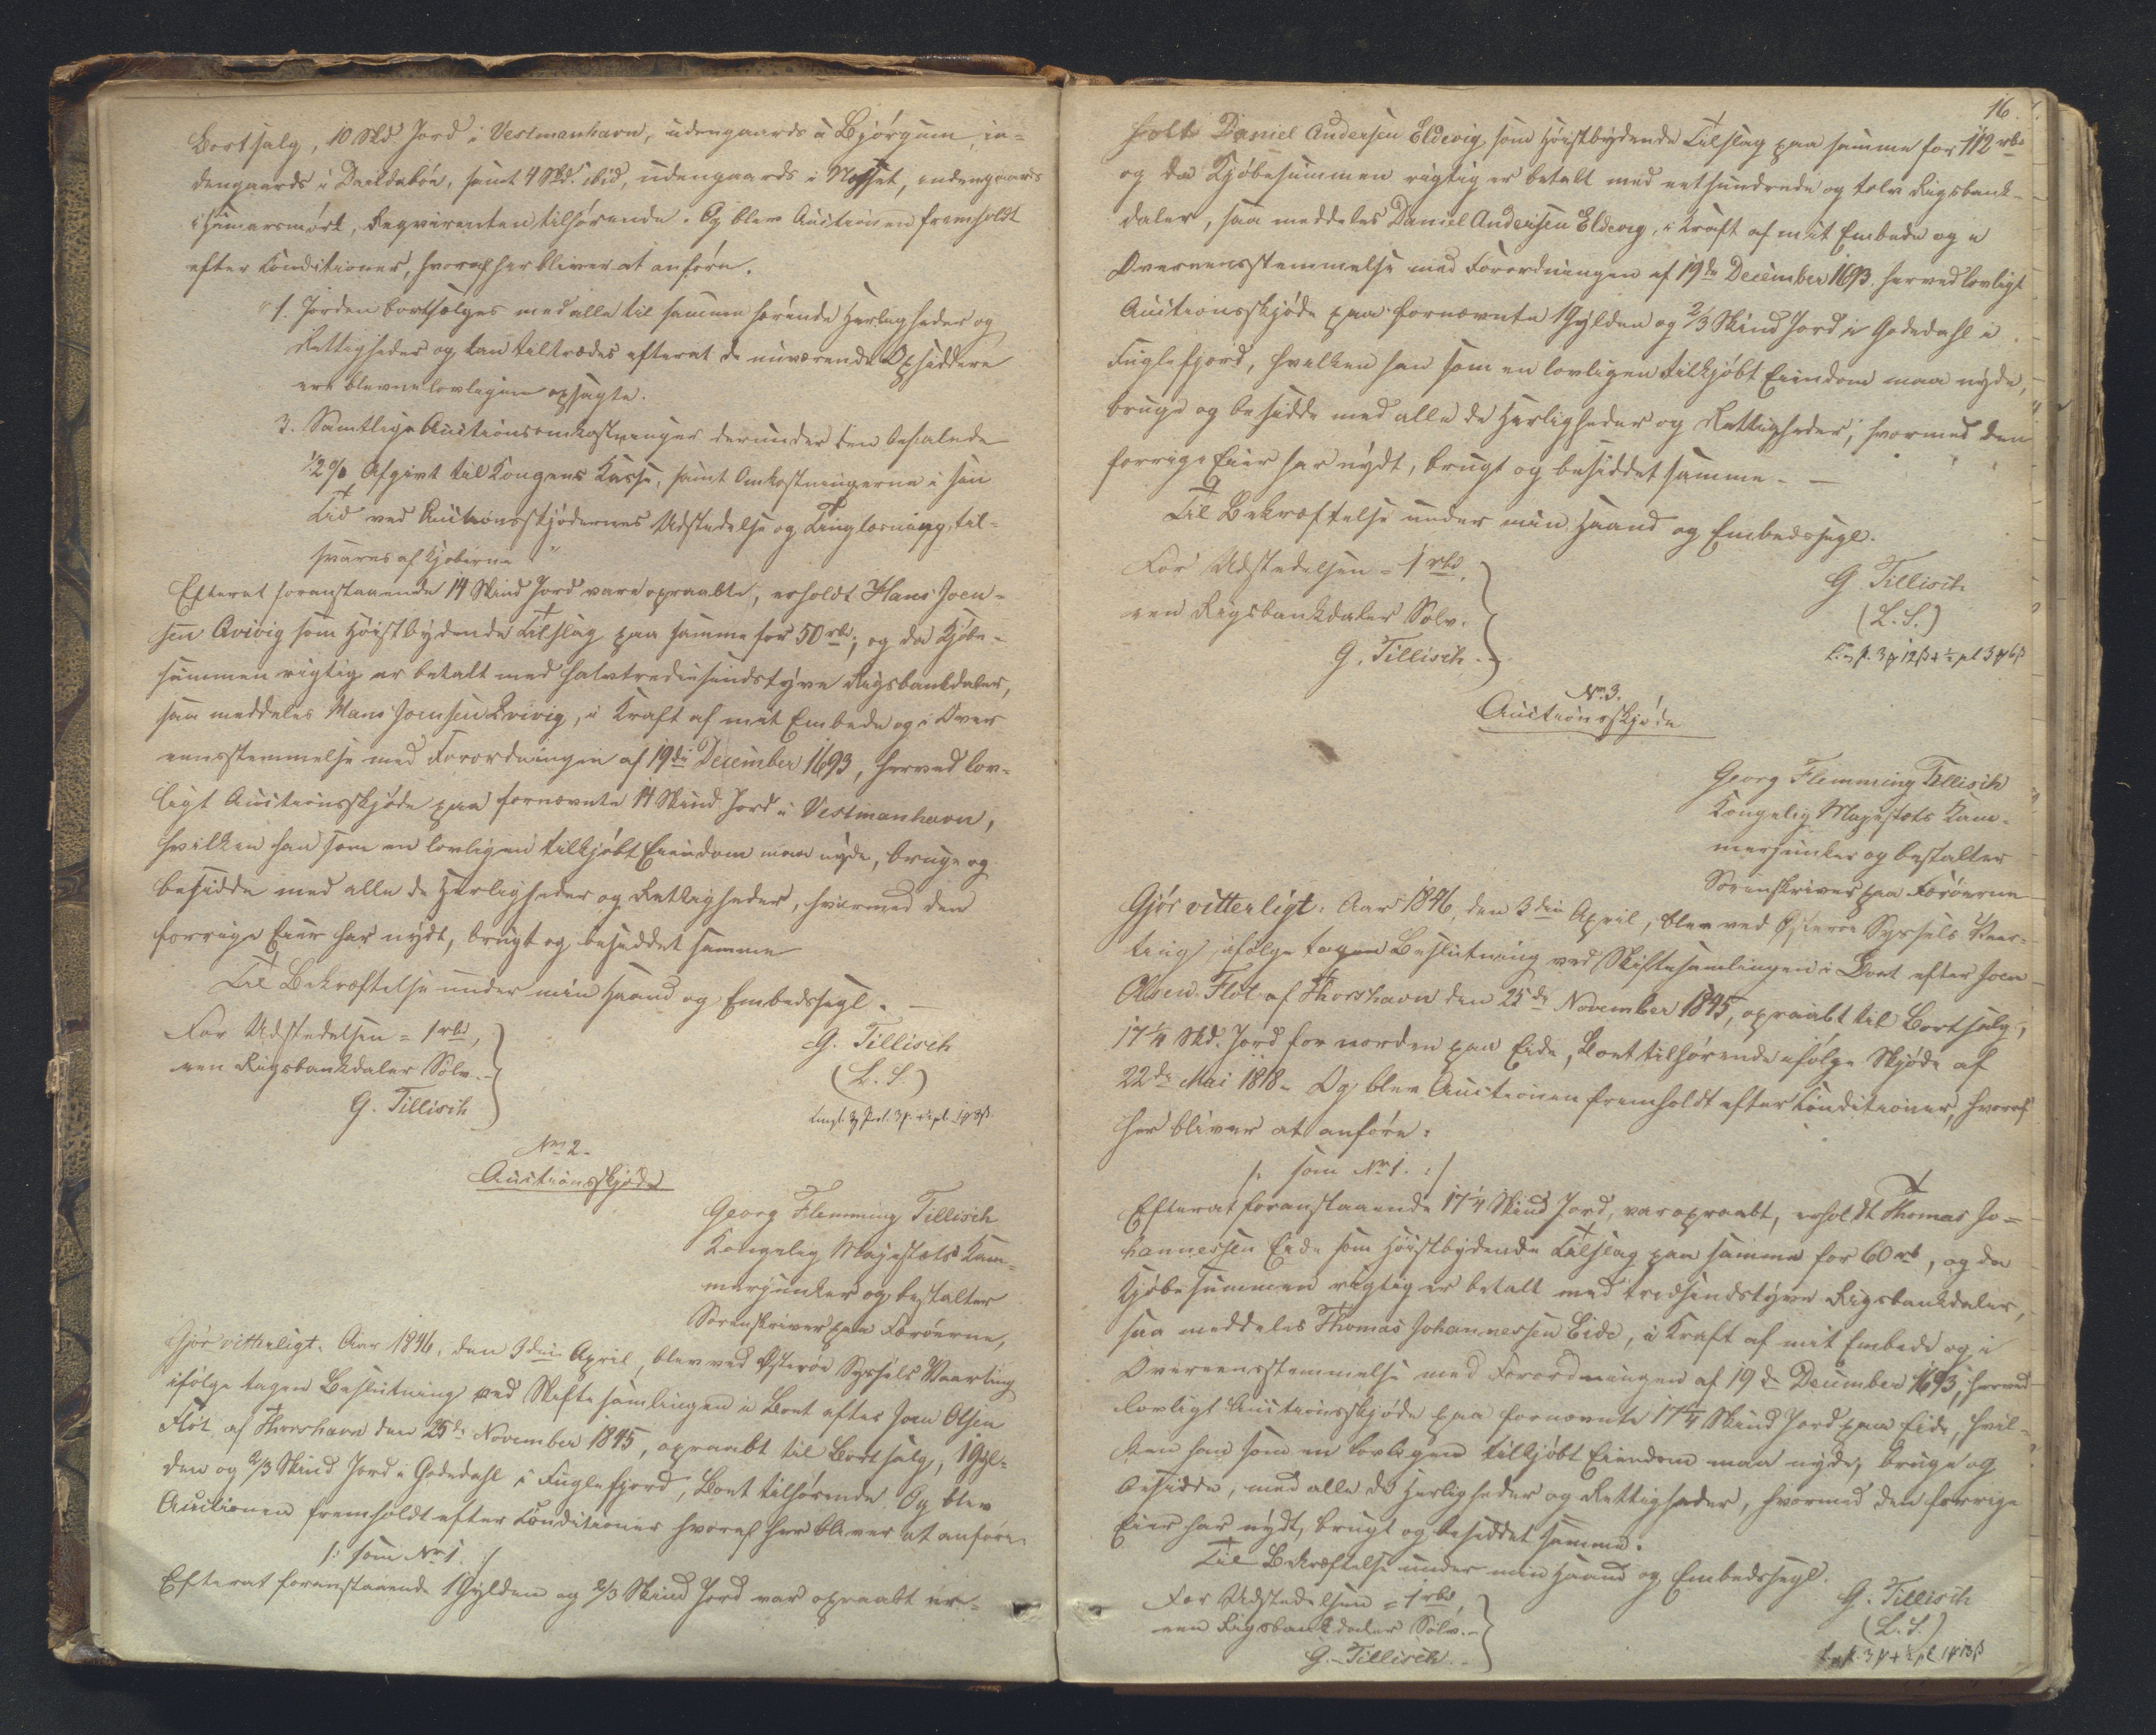 Bortsalg, 10 Skd. Jord i Vestmanhavn, udengaards i Bjørgum, in-
dengaards i Daeldabøn, samt 4 Skd. ibid, udengaards i Nesset, indengaards
i Hamarsmørk, Reqvirenten tilhørende. Og blev Auctionen fremholdt
efter Conditioner, hvoraf her bliver at anføre.
"1. Jorden bortsælges med alle til samme hørende Herligheder og
Rettigheder og kan tiltrædes efterat de nuværende Opsiddere
ere blevne lovligen opsagte.
3. Samtlige Auctionsomkostninger derunder den befalede
1/2 % Afgivt til Kongens Kasse, samt Omkostningerne i sin
Tid ved Auctionsskjødernes Udstedelse og Tinglæsning, til-
svares af Kjøberne "
Efterat foranstaaende 14 Skind Jord vare opraabte, erholdt Hans Joen-
sen Qvivig som Høistbydende Tilslag paa samme for 50 rbd, og da Kjøbe-
summen rigtig er betalt med halvtredsindstyve Rigsbankdaler,
saa meddeles Hans Joensen Qvivig, i Kraft af mit Embede og i Over
eensstemmelse med Forordningen af 19de December 1693, herved lov-
ligt Auctionsskjøde paa fornævnte 14 Skind Jord i Vestmanhavn,
hvilken han som en lovligen tilkjøbt Eiendom maa nyde, bruge og
besidde med alle de Herligheder og Rettigheder, hvormed den
forrige Eier har nydt, brugt og besiddet samme
Til Bekræftelse under min Haand og Embedssegl. —
For Udstedelsen = 1 rbd,
een Rigsbankdaler Sølv. -
G. Tillisch
G. Tillisch
(L. S.)
No 2.
Auctionsskjøde
Georg Flemming Tillisch
Kongelig Majestæts Kam-
merjunker og bestalter
Sorenskriver paa Færøerne,
Gjør vitterligt: Aar 1846, den 3die April, blev ved Østerøe Syssels Vaarting
ifølge tagen Beslutning ved Skiftesamlingen i Boet efter Joen Olsen
Fløt af Thorshavn den 25de November 1845, opraabt til Bortsalg, 1 Gyl-
den og 2/3 Skind Jord i Godedahl i Fuglefjord, Boet tilhørende. Og blev
Auctionen fremholdt efter Conditioner hvoraf her bliver at anføre:
/: som No 1. :/
Efterat foranstaaende 1 Gylden og 2/3 Skind Jord var opraabt er-
16.
holdt Daniel Andersen Eldevig som Høistbydende Tilslag paa samme for 112 rbd
og da Kjøbesummen rigtig er betalt med eethundrede og tolv Rigsbank-
daler, saa meddeles Daniel Andersen Eldevig, i Kraft af mit Embede og i
Overeensstemmelse med Forordningen af 19de December 1693 herved lovligt
Auctionsskjøde paa fornævnte 1 Gylden og 2/3 Skind Jord i Godedahl i
Fuglefjord, hvilken han som en lovligen tilkjøbt Eiendom maa nyde,
bruge og besidde med alle de Herligheder og Rettigheder, hvormed den
forrige Eier har nydt, brugt og besiddet samme. —
Til Bekræftelse under min Haand og Embedssegl.
For Udstedelsen = 1 rbd,
een Rigsbankdaler Sølv.
G. Tillisch.
G. Tillisch
(L. S.)
No 3.
Auctionsskjøde
Georg Flemming Tillisch
Kongelig Majestæts Kam-
merjunker og bestalter
Sorenskriver paa Færøerne
Gjør vitterligt: Aar 1846, den 3die April, blev ved Østerøe Syssels Vaar-
ting, ifølge tagen Beslutning ved Skiftesamlingen i Boet efter Joen
Olsen Fløt af Thorshavn den 25de November 1845, opraabt til Bortsalg,
17 1/4 Skd. Jord for norden paa Eide, Boet tilhørende ifølge Skjøde af
22de Mai 1818. Og blev Auctionen fremholdt efter Conditioner, hvoraf
her bliver at anføre:
/: som No 1. :/
Efterat foranstaaende 17 1/4 Skind Jord, var opraabt, erholdt Thomas Jo-
hannessen Eide som Høistbydende Tilslag paa samme for 60 rbd, og da
Kjøbesummen rigtig er betalt med tredsindstyve Rigsbankdaler,
saa meddeles Thomas Johannessen Eide, i Kraft af mit Embede og i
Overeensstemmelse med Forordningen af 19de December 1693, herved
lovligt Auctionsskjøde paa fornævnte 17 1/4 Skind Jord paa Eide, hvil-
ken han som en lovligen tilkjøbt Eiendom maa nyde, bruge og
besidde, med alle de Herligheder og Rettigheder, hvormed den forrige
Eier har nydt, brugt og besiddet samme.
Til Bekræftelse under min Haand og Embedssegl.
For Udstedelsen = 1 rbd,
een Rigsbankdaler Sølv. -
G. Tillisch
G. Tillisch
(L. S.)